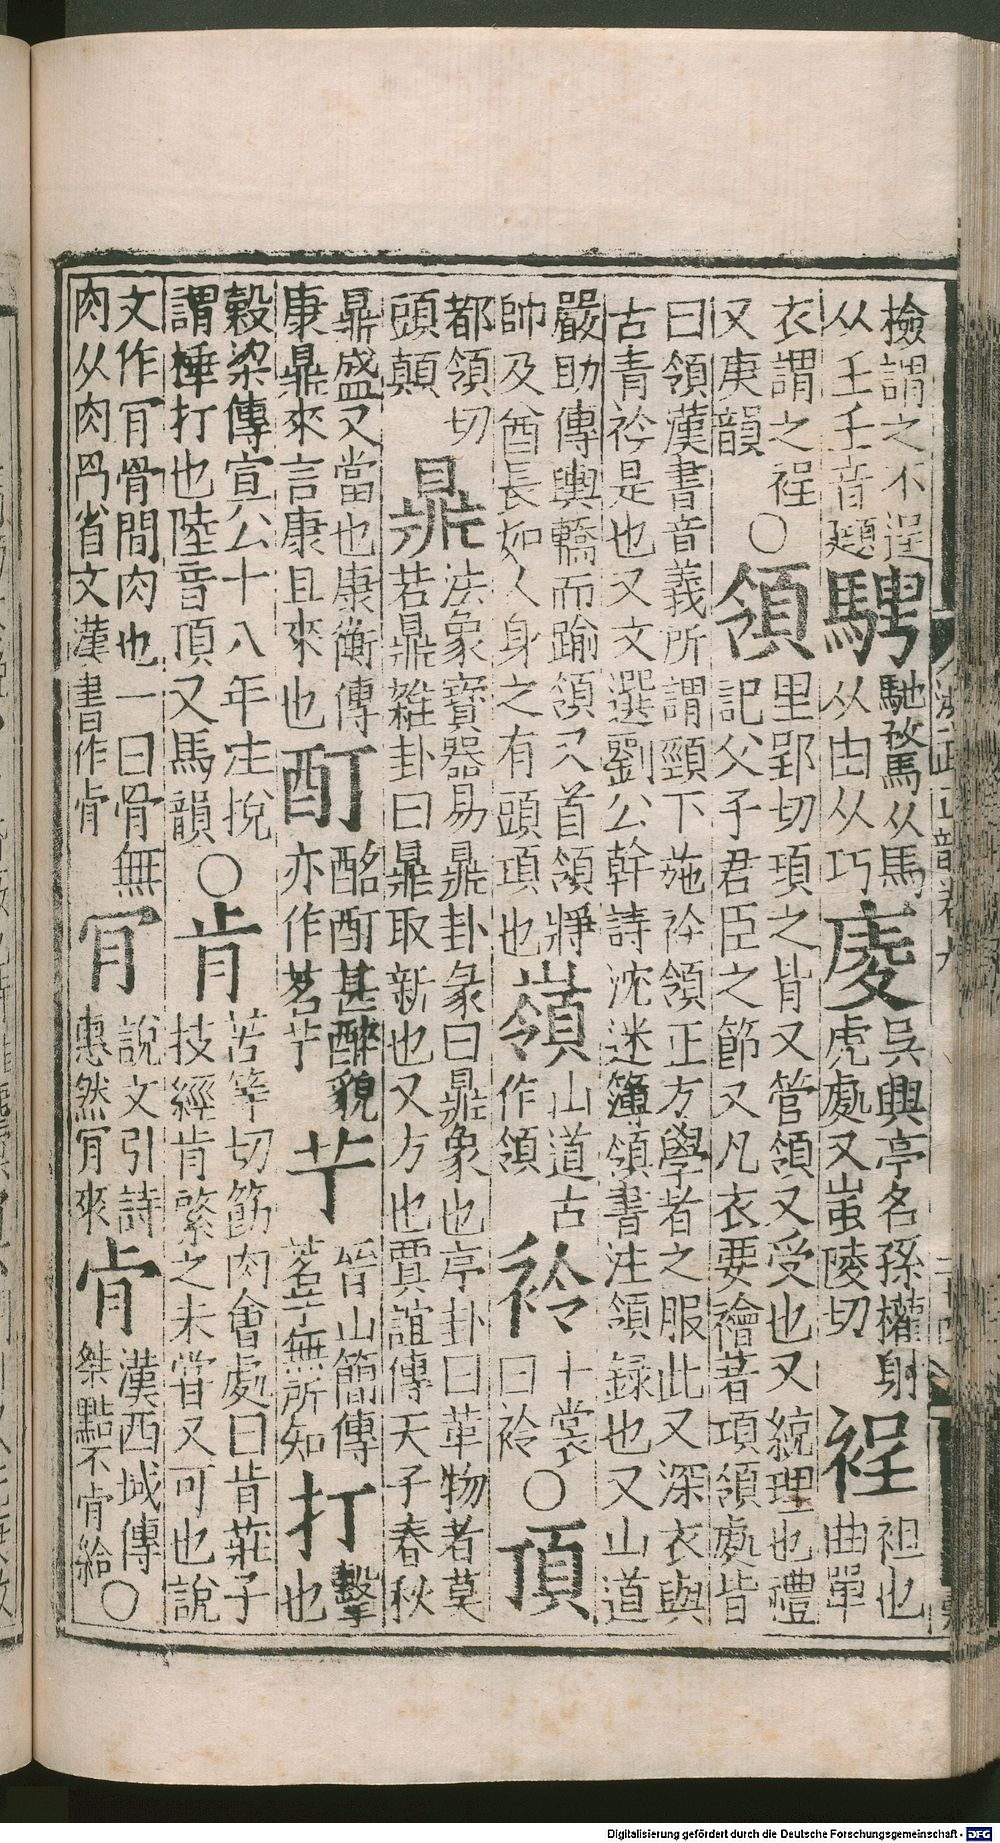 檢謂之不逞騁馳騖从馬㢑吳興亭名孫權射裎袒也
从壬壬音珽 从由从丂 虎處又蚩陵切 曲單
衣謂之裎○領里郢切項之背又管領又受也又統理也禮
又庚韻 記父子君臣之節又凡衣要襘著項領處皆
曰領漢書音義所謂頸下施衿領正方學者之服此又深衣與
古青衿是也又文選劉公幹詩沈迷簿領書注領録也又山道
嚴助傳輿轎而踰領又首領將嶺山道古袊十裳○頂
帥及酋長如人身之有頭項也 作領 曰袊
都領切鼎法象寶器易鼎卦彖曰鼎象也亭卦曰革物者莫
頭顛 若鼎雜卦曰鼎取新也又方也賈誼傳天子春秋
鼎盛又當也康衡傳酊酩酊甚醉貌艼晉山簡傳打擊
康鼎來言康且來也 亦作茗艼 茗艼無所知 也
穀梁傳宣公十八年注挩○肯苦等切筋肉會處曰肯莊子
謂捶打也陸音頂又馬韻 技經肯綮之未嘗又可也說
文作冃骨間肉也一曰骨無冃說文引詩肎漢西域傳○
肉从肉冎省文漢書作肎 惠然冃來 桀黠不肎給
Digitalisierung gefördert durch die Deutsche Forschungsgemeinschaft - DFG